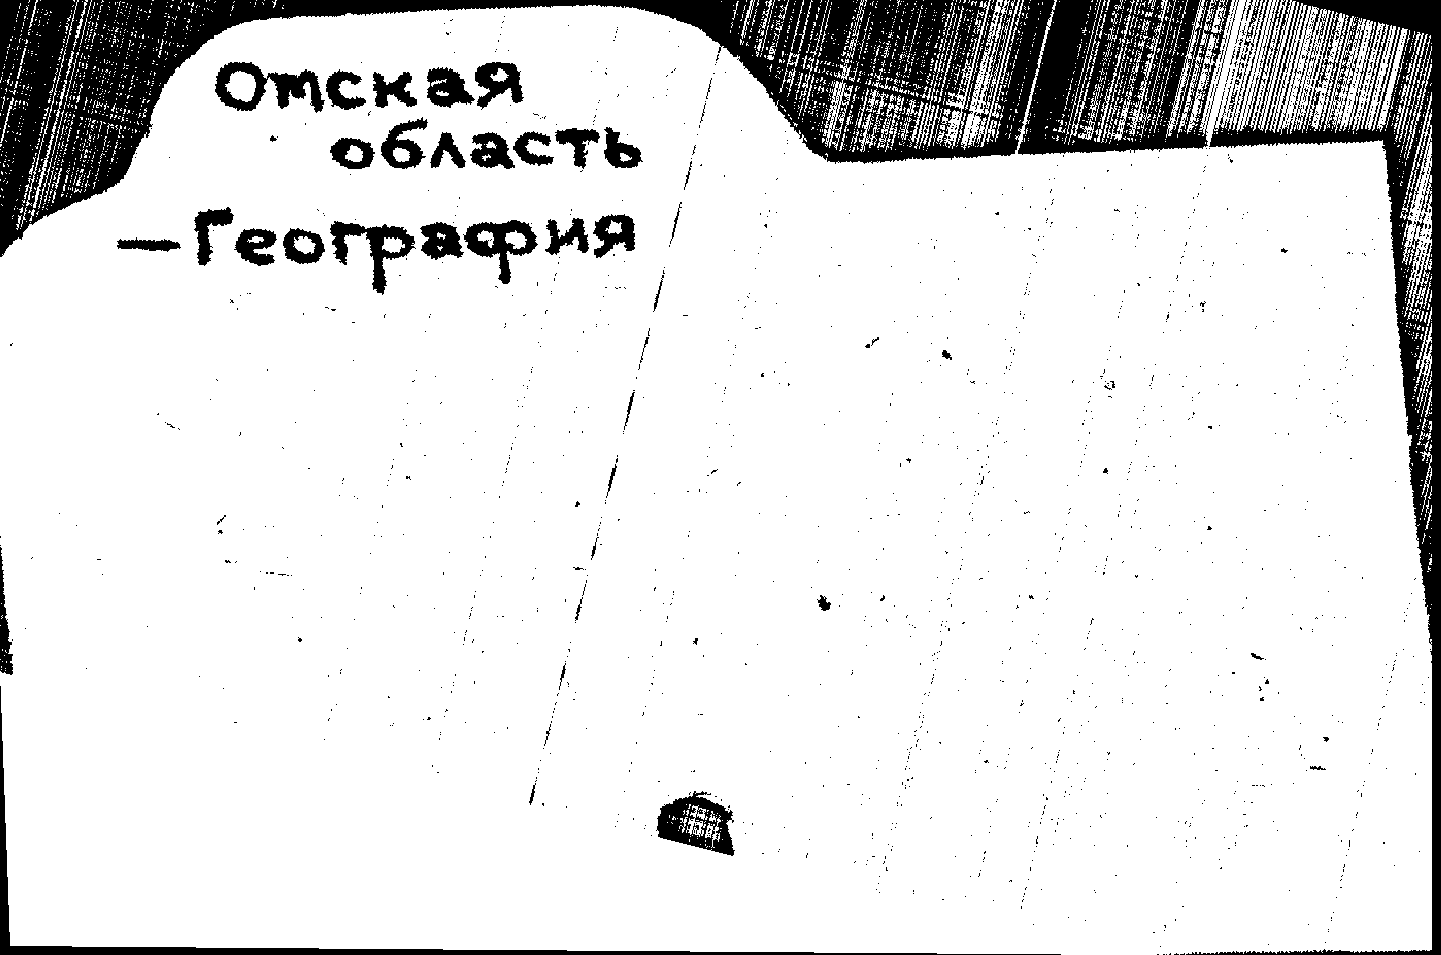 Омская
область
—География